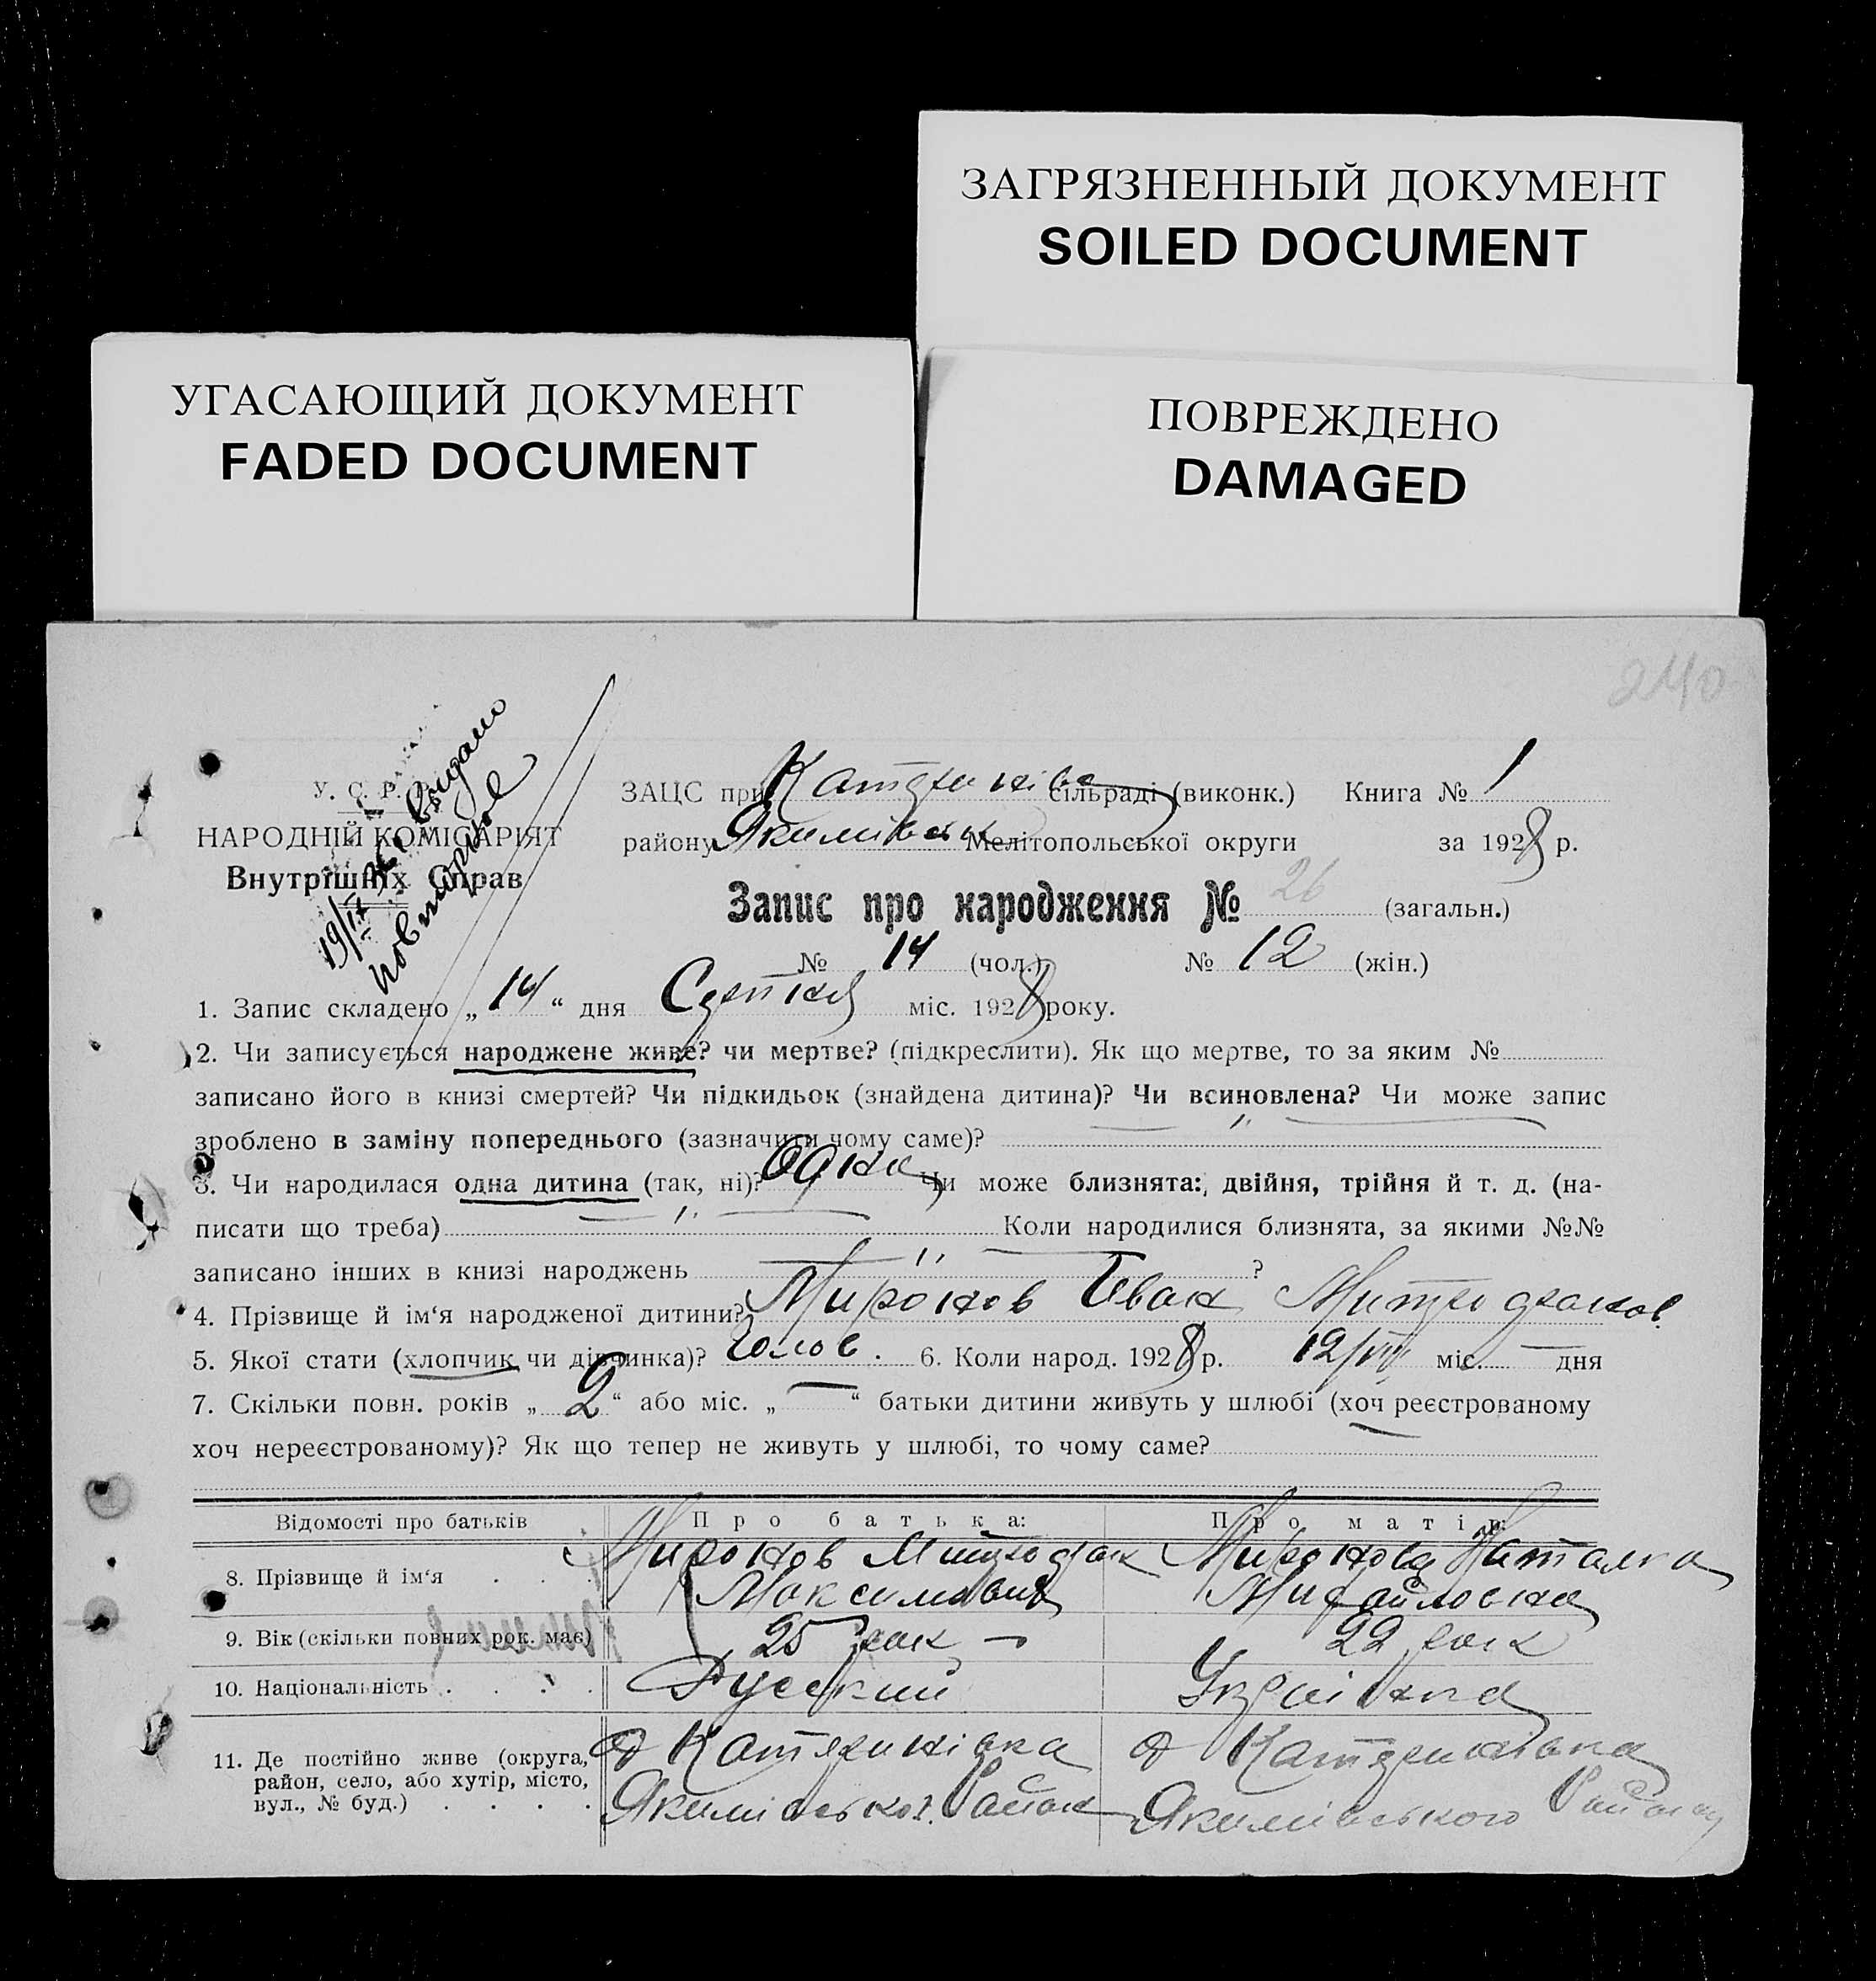 ЗАГРЯЗНЕННЫЙ ДОКУМЕНТ
SOILED DOCUMENT
УГАСАЮЩИЙ ДОКУМЕНТ
FADED DOCUMENT
ПОВРЕЖДЕНО
DAMAGED
240
У. С. Р. Р.
НАРОДНІЙ КОМІСАРІЯТ
Внутрішніх Справ
19/IX видано
повторное
ЗАЦС при Катеринівс сільраді (виконк.) Книга № 1
району Якимівськ Мелітопольської округи за 1928 р.
Запис про народження № 26 (загальн.)
№ 14 (чол.) № 12 (жін.)
1. Запис складено „ 14 “ дня Серпня міс. 1928 року.
2. Чи записується народжене живе? чи мертве? (підкреслити). Як що мертве, то за яким №
записано його в книзі смертей? Чи підкидьок (знайдена дитина)? Чи всиновлена? Чи може запис
зроблено в заміну попереднього (зазначити чому саме)?
3. Чи народилася одна дитина (так, ні)? Одна Чи може близнята:, двійня, трійня й т. д. (на-
писати що треба) Коли народилися близнята, за якими №№
записано інших в книзі народжень ?
4. Прізвище й ім‘я народженої дитини? Миронов Іван Митрофанов.
5. Якої стати (хлопчик чи дівчинка)? Чолов. 6. Коли народ. 1928 р. 12/VIII міс. — дня
7. Скільки повн. років „ 2 “ або міс. „ — “ батьки дитини живуть у шлюбі (хоч реєстрованому
хоч нереєстрованому)? Як що тепер не живуть у шлюбі, то чому саме?
Відомості про батьків Про батька: Про матір:
8. Прізвище й ім‘я Миронов Митрофан Миронова Наталка
Максимович Михайловна
9. Вік (скільки повних рок. має) 25 рок — 22 рок
10. Національність Русский Українка
11. Де постійно живе (округа, район, село, або хутір, місто, вул., № буд.) с Катеринівка с Катеринівка
Якимівськог. Район Якимівського Району